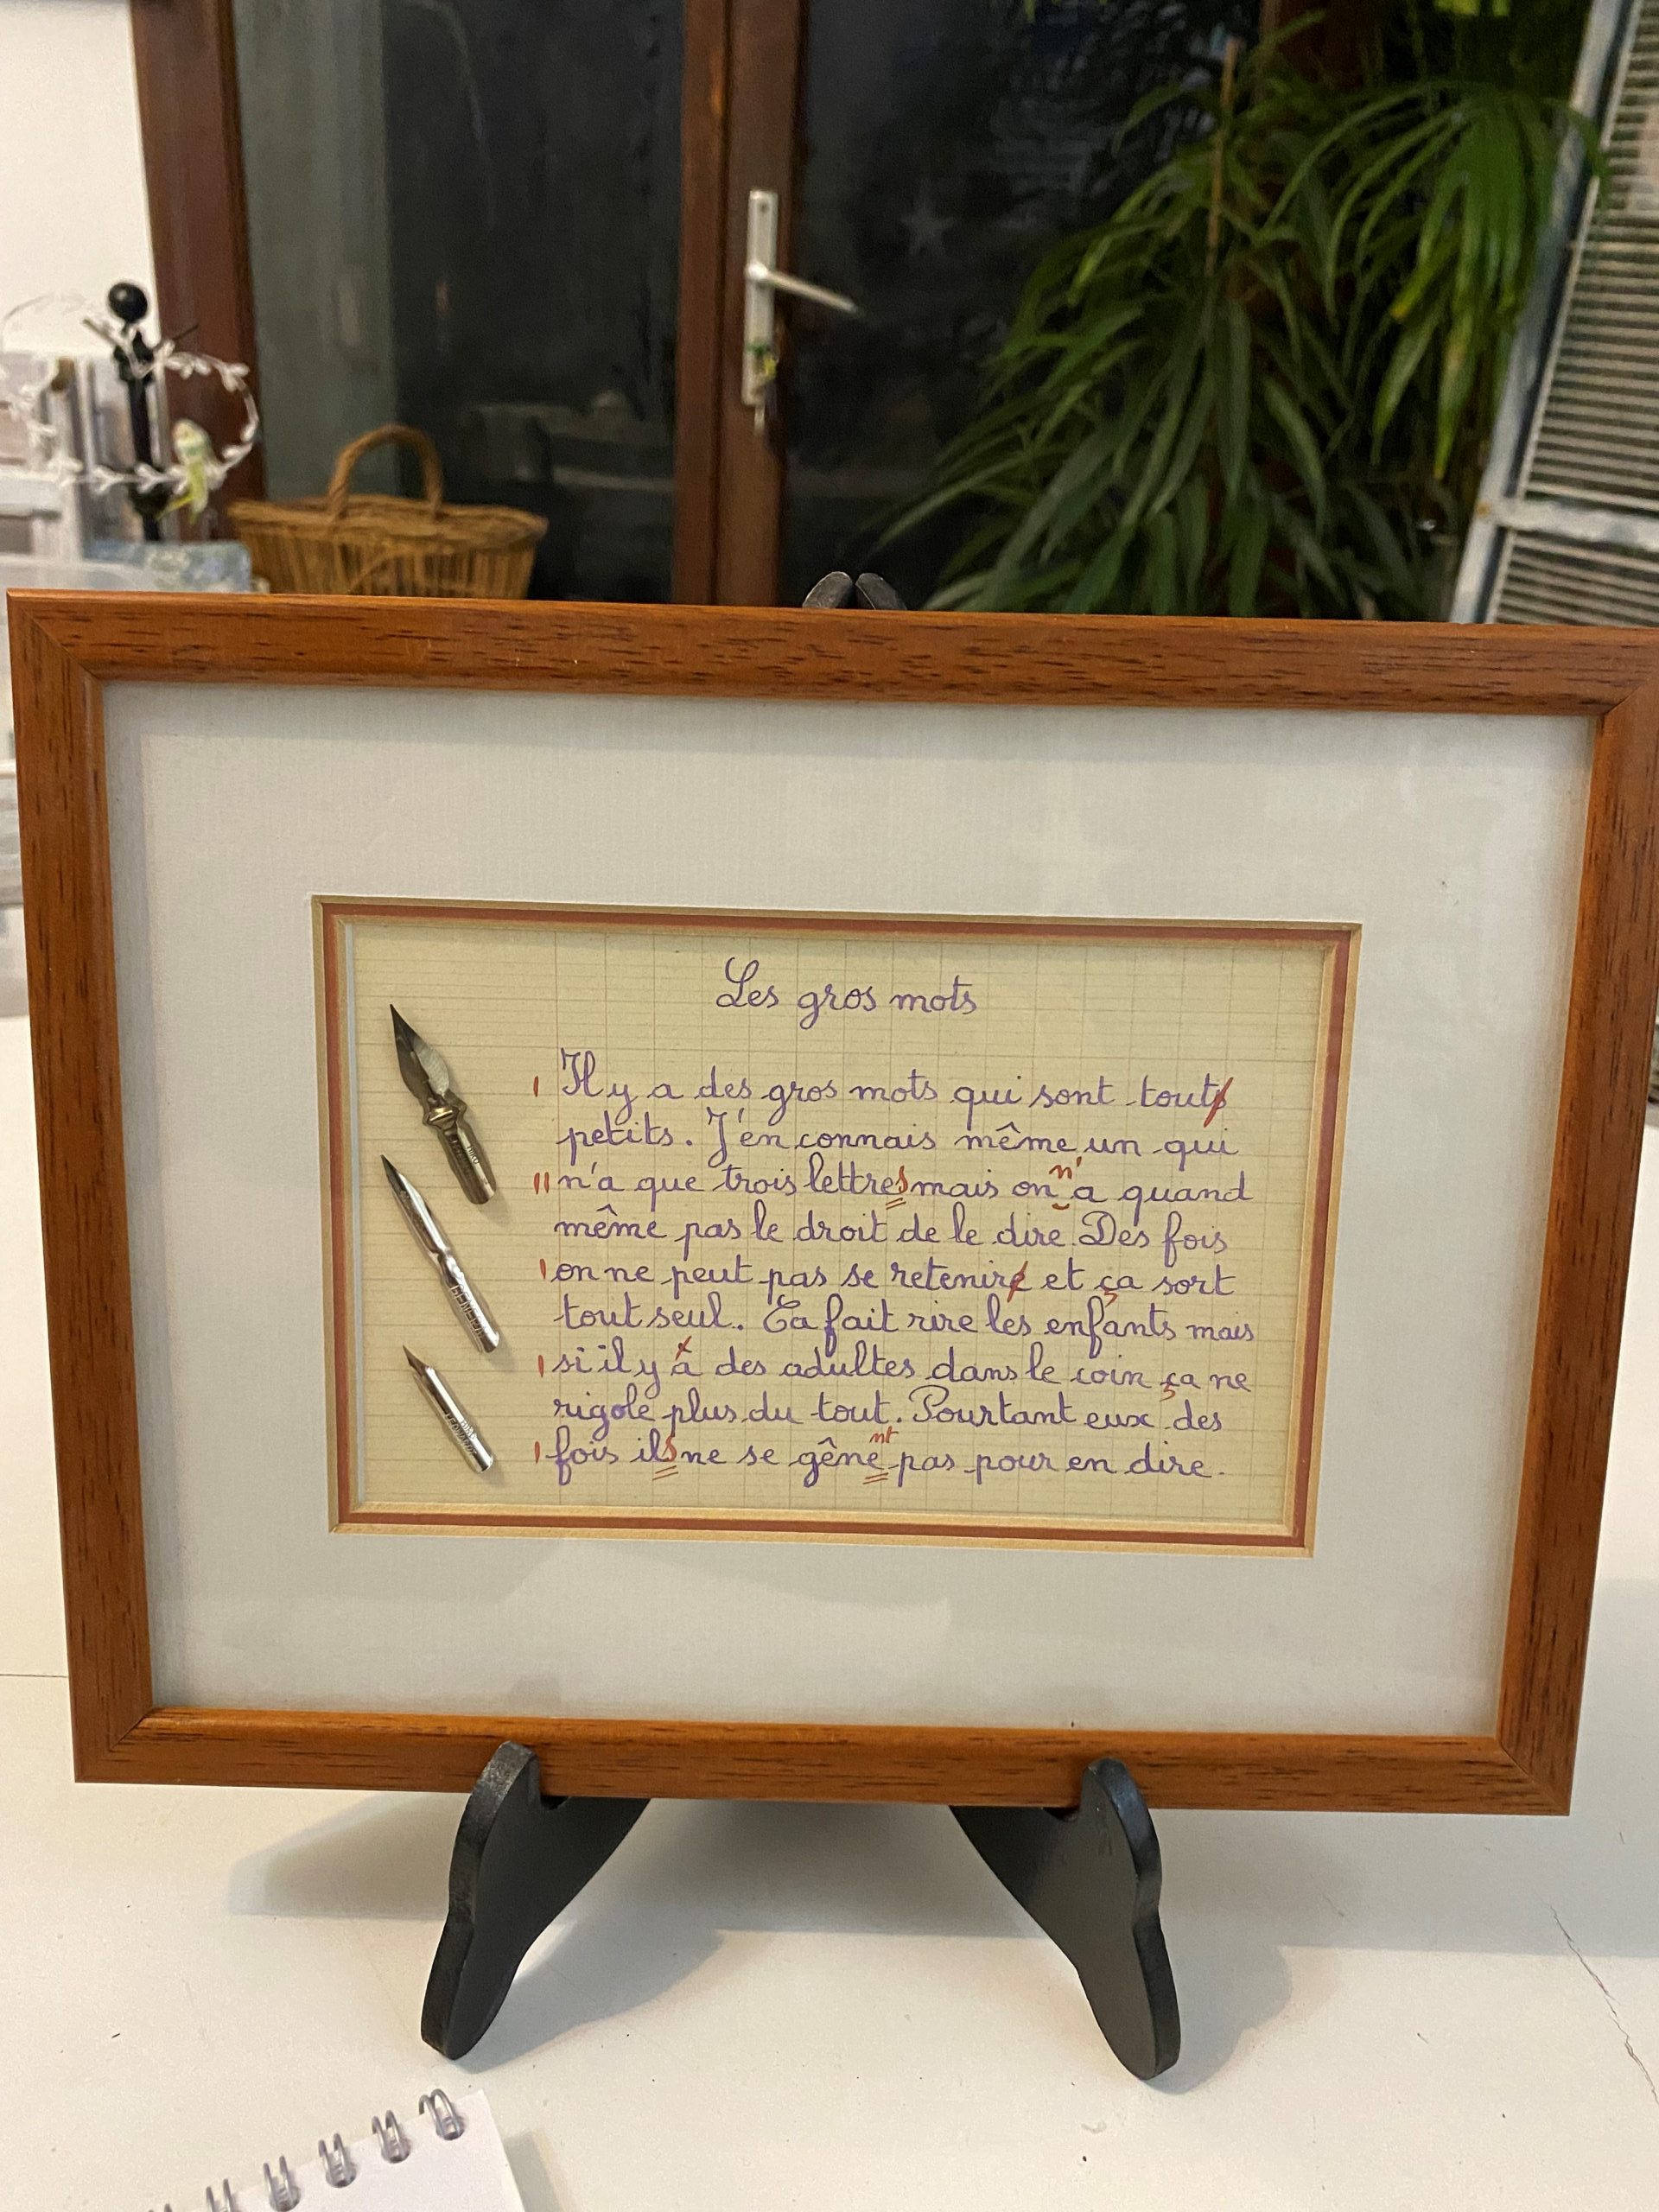 Les gros mots
Il y a des gros mots qui sont touts
petits. J'en connais même un qui
n'a que trois lettres mais on n'a quand
même pas le droit de le dire. Des fois
on ne peut pas se retenire et ça sort
tout seul. Ca fait rire les enfants mais
si il y à des adultes dans le coin ça ne
rigole plus du tout. Pourtant eux des
fois ils ne se gênent pas pour en dire.